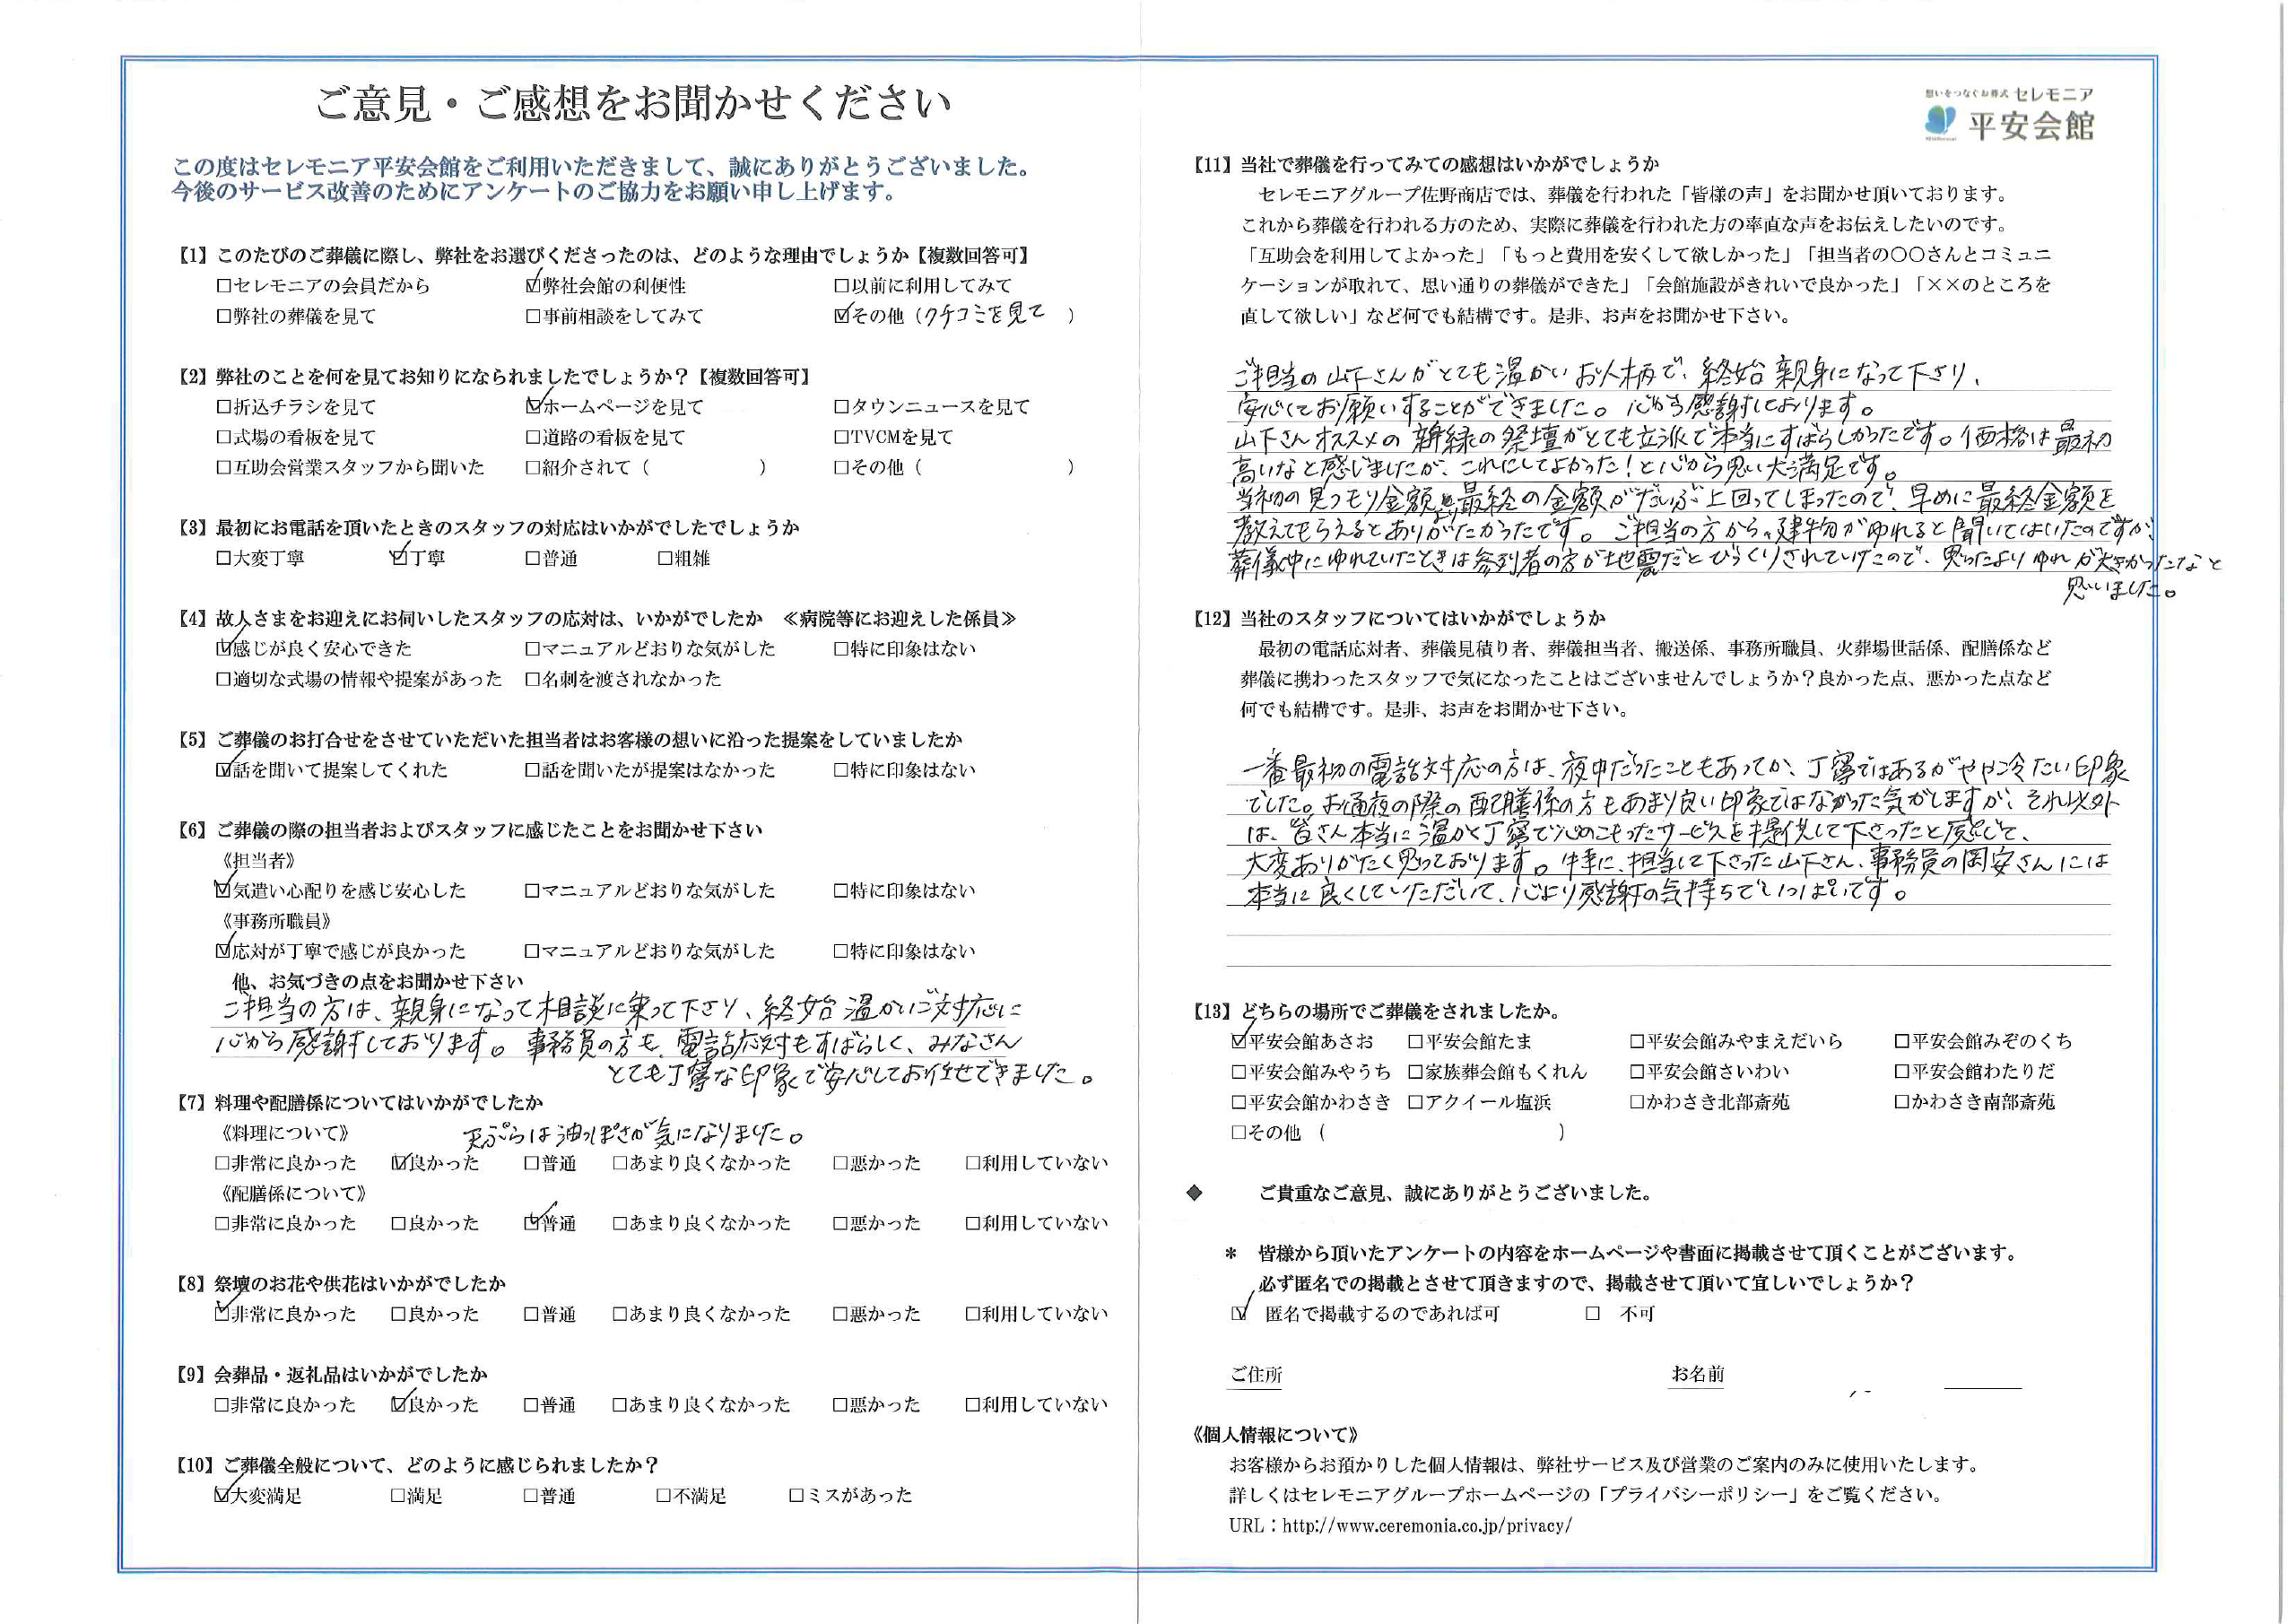 ご意見・ご感想をお聞かせください
この度はセレモニア平安会館をご利用いただきまして、誠にありがとうございました。
今後のサービス改善のためにアンケートのご協力をお願い申し上げます。
【1】このたびのご葬儀に際し、弊社をお選びくださったのは、どのような理由でしょうか【複数回答可】
□セレモニアの会員だから ☑弊社会館の利便性 □以前に利用してみて
□弊社の葬儀を見て □事前相談をしてみて ☑その他（クチコミを見て ）
【2】弊社のことを何を見てお知りになられましたでしょうか？【複数回答可】
□折込チラシを見て ☑ホームページを見て □タウンニュースを見て
□式場の看板を見て □道路の看板を見て □TVCMを見て
□互助会営業スタッフから聞いた □紹介されて（ ） □その他（ ）
【3】最初にお電話を頂いたときのスタッフの対応はいかがでしたでしょうか
□大変丁寧 ☑丁寧 □普通 □粗雑
【4】故人さまをお迎えにお伺いしたスタッフの応対は、いかがでしたか ≪病院等にお迎えした係員≫
☑感じが良く安心できた □マニュアルどおりな気がした □特に印象はない
□適切な式場の情報や提案があった □名刺を渡されなかった
【5】ご葬儀のお打合せをさせていただいた担当者はお客様の想いに沿った提案をしていましたか
☑話を聞いて提案してくれた □話を聞いたが提案はなかった □特に印象はない
【6】ご葬儀の際の担当者およびスタッフに感じたことをお聞かせ下さい
《担当者》
☑気遣い心配りを感じ安心した □マニュアルどおりな気がした □特に印象はない
《事務所職員》
☑応対が丁寧で感じが良かった □マニュアルどおりな気がした □特に印象はない
他、お気づきの点をお聞かせ下さい
ご担当の方は、親身になって相談に乗って下さり、終始温かいご対応に
心から感謝しております。事務員の方も、電話応対もすばらしく、みなさん
とても丁寧な印象で安心してお任せできました。
【7】料理や配膳係についてはいかがでしたか
《料理について》 天ぷらは油っぽさが気になりました。
□非常に良かった ☑良かった □普通 □あまり良くなかった □悪かった □利用していない
《配膳係について》
□非常に良かった □良かった ☑普通 □あまり良くなかった □悪かった □利用していない
【8】祭壇のお花や供花はいかがでしたか
☑非常に良かった □良かった □普通 □あまり良くなかった □悪かった □利用していない
【9】会葬品・返礼品はいかがでしたか
□非常に良かった ☑良かった □普通 □あまり良くなかった □悪かった □利用していない
【10】ご葬儀全般について、どのように感じられましたか？
☑大変満足 □満足 □普通 □不満足 □ミスがあった
想いをつなぐお葬式 セレモニア
平安会館
【11】当社で葬儀を行ってみての感想はいかがでしょうか
セレモニアグループ佐野商店では、葬儀を行われた「皆様の声」をお聞かせ頂いております。
これから葬儀を行われる方のため、実際に葬儀を行われた方の率直な声をお伝えしたいのです。
「互助会を利用してよかった」「もっと費用を安くして欲しかった」「担当者の〇〇さんとコミュニ
ケーションが取れて、思い通りの葬儀ができた」「会館施設がきれいで良かった」「××のところを
直して欲しい」など何でも結構です。是非、お声をお聞かせ下さい。
ご担当の山下さんがとても温かいお人柄で、終始親身になって下さり、
安心してお願いすることができました。心から感謝しております。
山下さんオススメの新緑の祭壇がとても立派で本当にすばらしかったです。価格は最初
高いなと感じましたが、これにしてよかった！と心から思い大満足です。
当初の見つもり金額より最終の金額がだいぶ上回ってしまったので、早めに最終金額を
教えてもらえるとありがたかったです。ご担当の方から、建物がゆれると聞いてはいたのですが、
葬儀中にゆれていたときは参列者の方が地震だとびっくりされていたので、思ったよりゆれが大きかったなと
思いました。
【12】当社のスタッフについてはいかがでしょうか
最初の電話応対者、葬儀見積り者、葬儀担当者、搬送係、事務所職員、火葬場世話係、配膳係など
葬儀に携わったスタッフで気になったことはございませんでしょうか？良かった点、悪かった点など
何でも結構です。是非、お声をお聞かせ下さい。
一番最初の電話対応の方は、夜中だったこともあってか、丁寧ではあるがやや冷たい印象
でした。お通夜の際の配膳係の方もあまり良い印象ではなかった気がしますが、それ以外
は、皆さん本当に温かく丁寧で心のこもったサービスを提供して下さったと感じて、
大変ありがたく思っております。特に、担当して下さった山下さん、事務員の岡安さんには
本当に良くしていただいて、心より感謝の気持ちでいっぱいです。
【13】どちらの場所でご葬儀をされましたか。
☑平安会館あさお □平安会館たま □平安会館みやまえだいら □平安会館みぞのくち
□平安会館みやうち □家族葬会館もくれん □平安会館さいわい □平安会館わたりだ
□平安会館かわさき □アクイール塩浜 □かわさき北部斎苑 □かわさき南部斎苑
□その他（ ）
◆ ご貴重なご意見、誠にありがとうございました。
＊ 皆様から頂いたアンケートの内容をホームページや書面に掲載させて頂くことがございます。
必ず匿名での掲載とさせて頂きますので、掲載させて頂いて宜しいでしょうか？
☑ 匿名で掲載するのであれば可 □ 不可
ご住所 お名前
《個人情報について》
お客様からお預かりした個人情報は、弊社サービス及び営業のご案内のみに使用いたします。
詳しくはセレモニアグループホームページの「プライバシーポリシー」をご覧ください。
URL：http://www.ceremonia.co.jp/privacy/